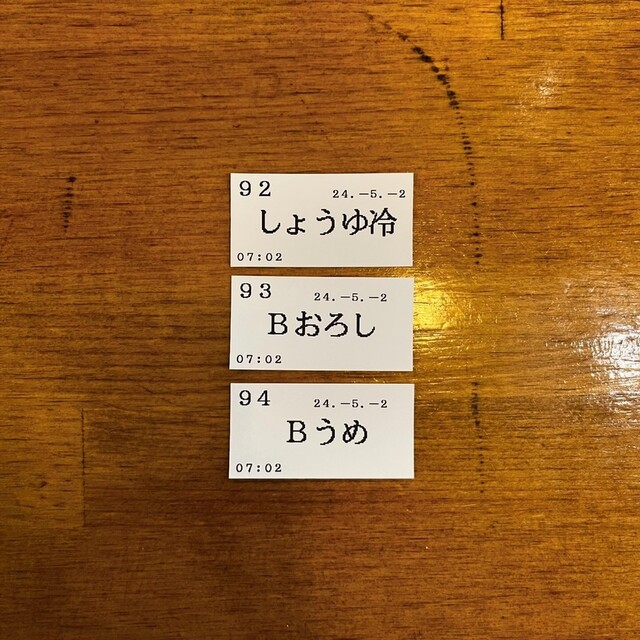 92 24.-5.-2
しょうゆ冷
07:02
93 24.-5.-2
Bおろし
07:02
94 24.-5.-2
Bうめ
07:02